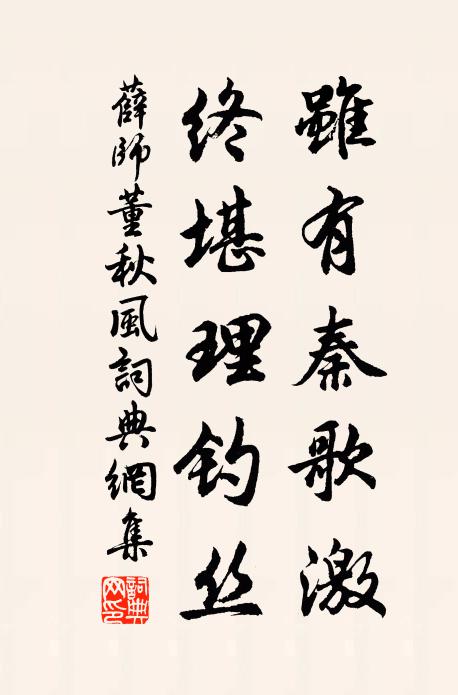 雖有秦歌激
终堪理钓丝
薛師董秋風詞典網集
詞典网印